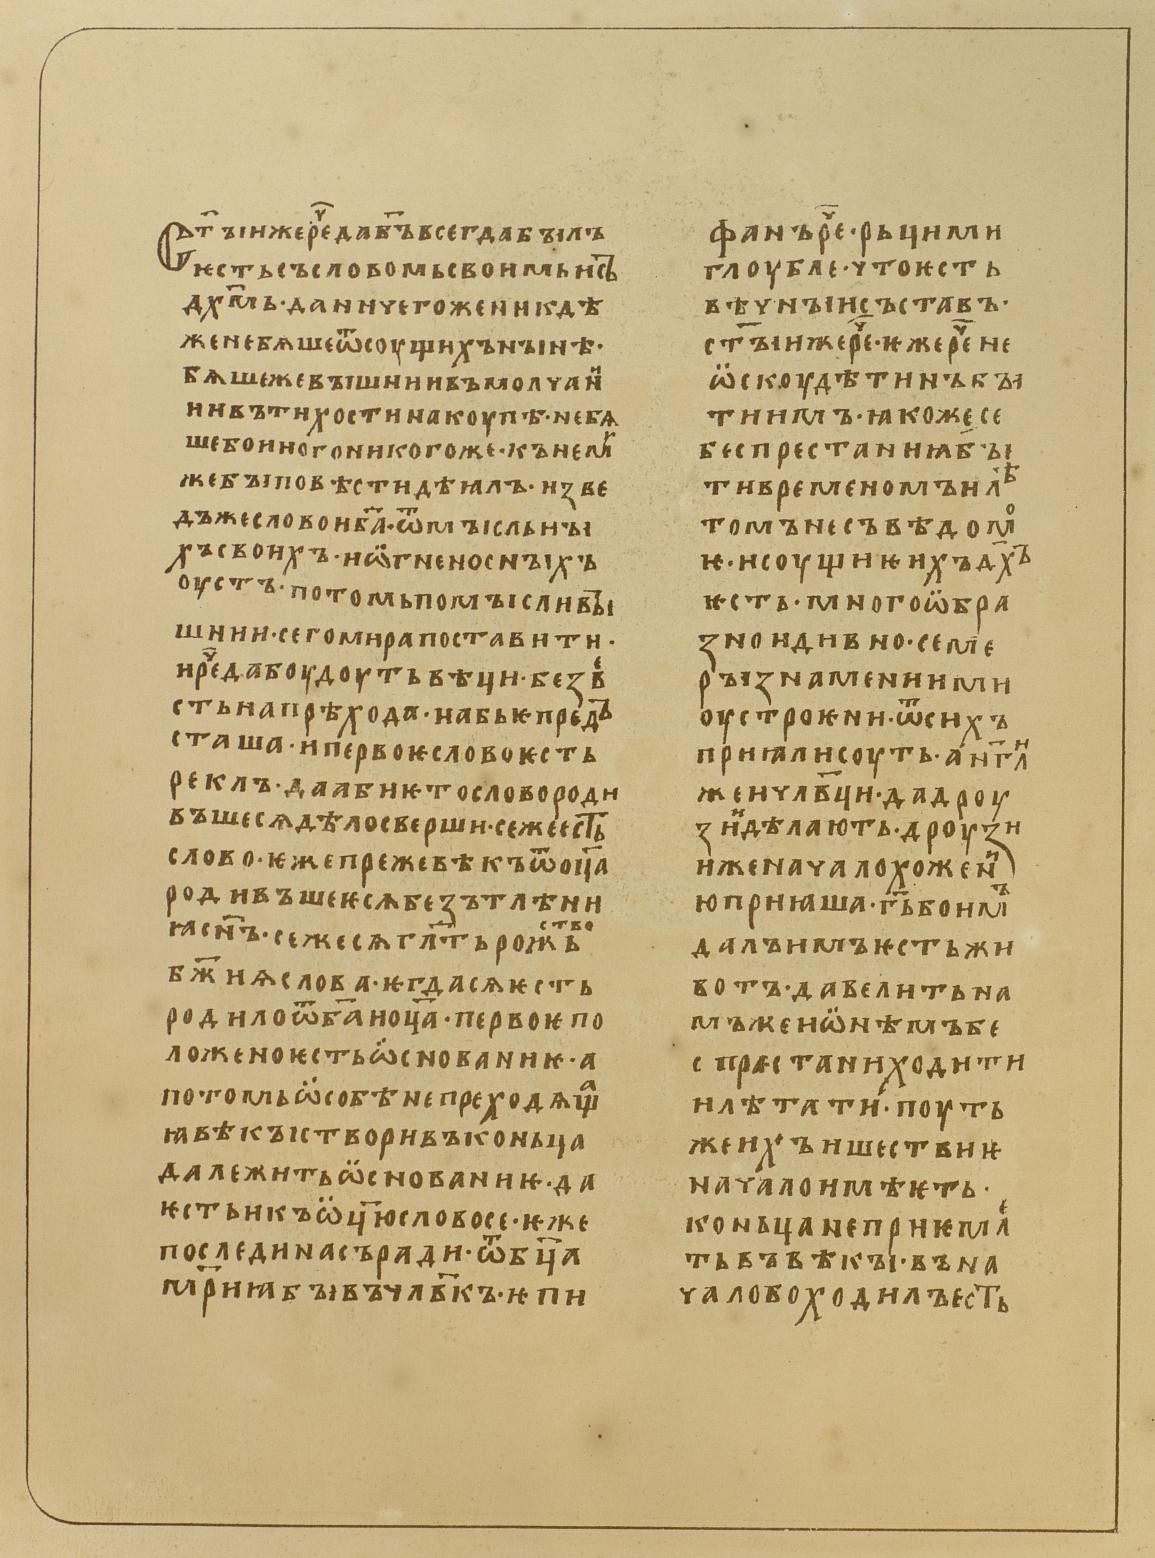 Ст҃ъıижерⷱ҇едаб҃ъвсегдабъıлъ
ѥстьсъсловомьсвоимьисъ
дх҃мь·даниѵегоженикдѣ
женебѧшеѿсоущихънъıнѣ·
бѧшежевъıшниивъмолѵаⷩи
иивътихостинакоупѣ·небѧ
шебоиногоникогоже·кънемꙋ
жебъıповѣстидѣꙗлъ·изве
дъжесловоиб҃а·ѿмъıсльнъı
хъсвоихъ·иѡ҃гненоснъıхъ
оустъ·потомьпомъıсливъı
шнии·сегомирапоставити·
ирⷱ҇едабоудоутьвѣци·безвⷭ
стьнапрѣхода·набьѥпредъ
сташа·ипервоѥсловоѥсть
реклъ·даабиѥтословороди
въшесѧдѣлосверши·сежеесть
слово·ѥжепрежевѣкъѿоц҃а
родивъшеѥсѧбезътлѣни
ꙗсн҃ъ·сежесѧгл҃тьрожⷭ҇тво
бж҃иѧслова·ѥгдасѧѥсть
родилоѿб҃аиоц҃а·первоѥпо
ложеноѥстьѡ҆снованиѥ·а
потомьѡ҆собѣнепреходѧща
ꙗвѣкъıстворивъконьца
далежитьѡ҆снованиѥ·да
ѥстьикъѡ҆ц҃юсловосе·ѥже
послединасъради·ѿбц҃а
мр҃иꙗбъıвъчлв҃къ·ѥпи
фанърⷱ҇е·рьцими
глоубле·ѵтоѥсть
вѣѵнъıисъставъ·
ст҃ъıижерⷱ҇е·ѥжерⷱ҇ене
ѡ҆скоудѣтинъбъı
тиимъ·ꙗкожесе
беспрестаниѩбъı
тивременомъилѣ
томънесъвѣдомо
ѥ·исоущиѥихъдх҃ъ
ѥсть·многоѡ҆бра
зноидивно·семе
ръıзнаменними
оустроѥни·ѿсихъ
приꙗлисоуть·англ҃и
женѵлв҃ци·дадроу
зиидѣлають·дроузи
иженаѵалохожени
юприꙗша·гь҃боимъ
далъимъѥстьжи
вотъ·давелитьна
мъжениѡ҆нѣмъбе
спрѥстаниходити
илѣтати·поуть
жеихъишествиѥ
наѵалоимѣѥть·
коньцанеприѥмле
тьвъвѣкъı·въна
ѵалобоходилъесть